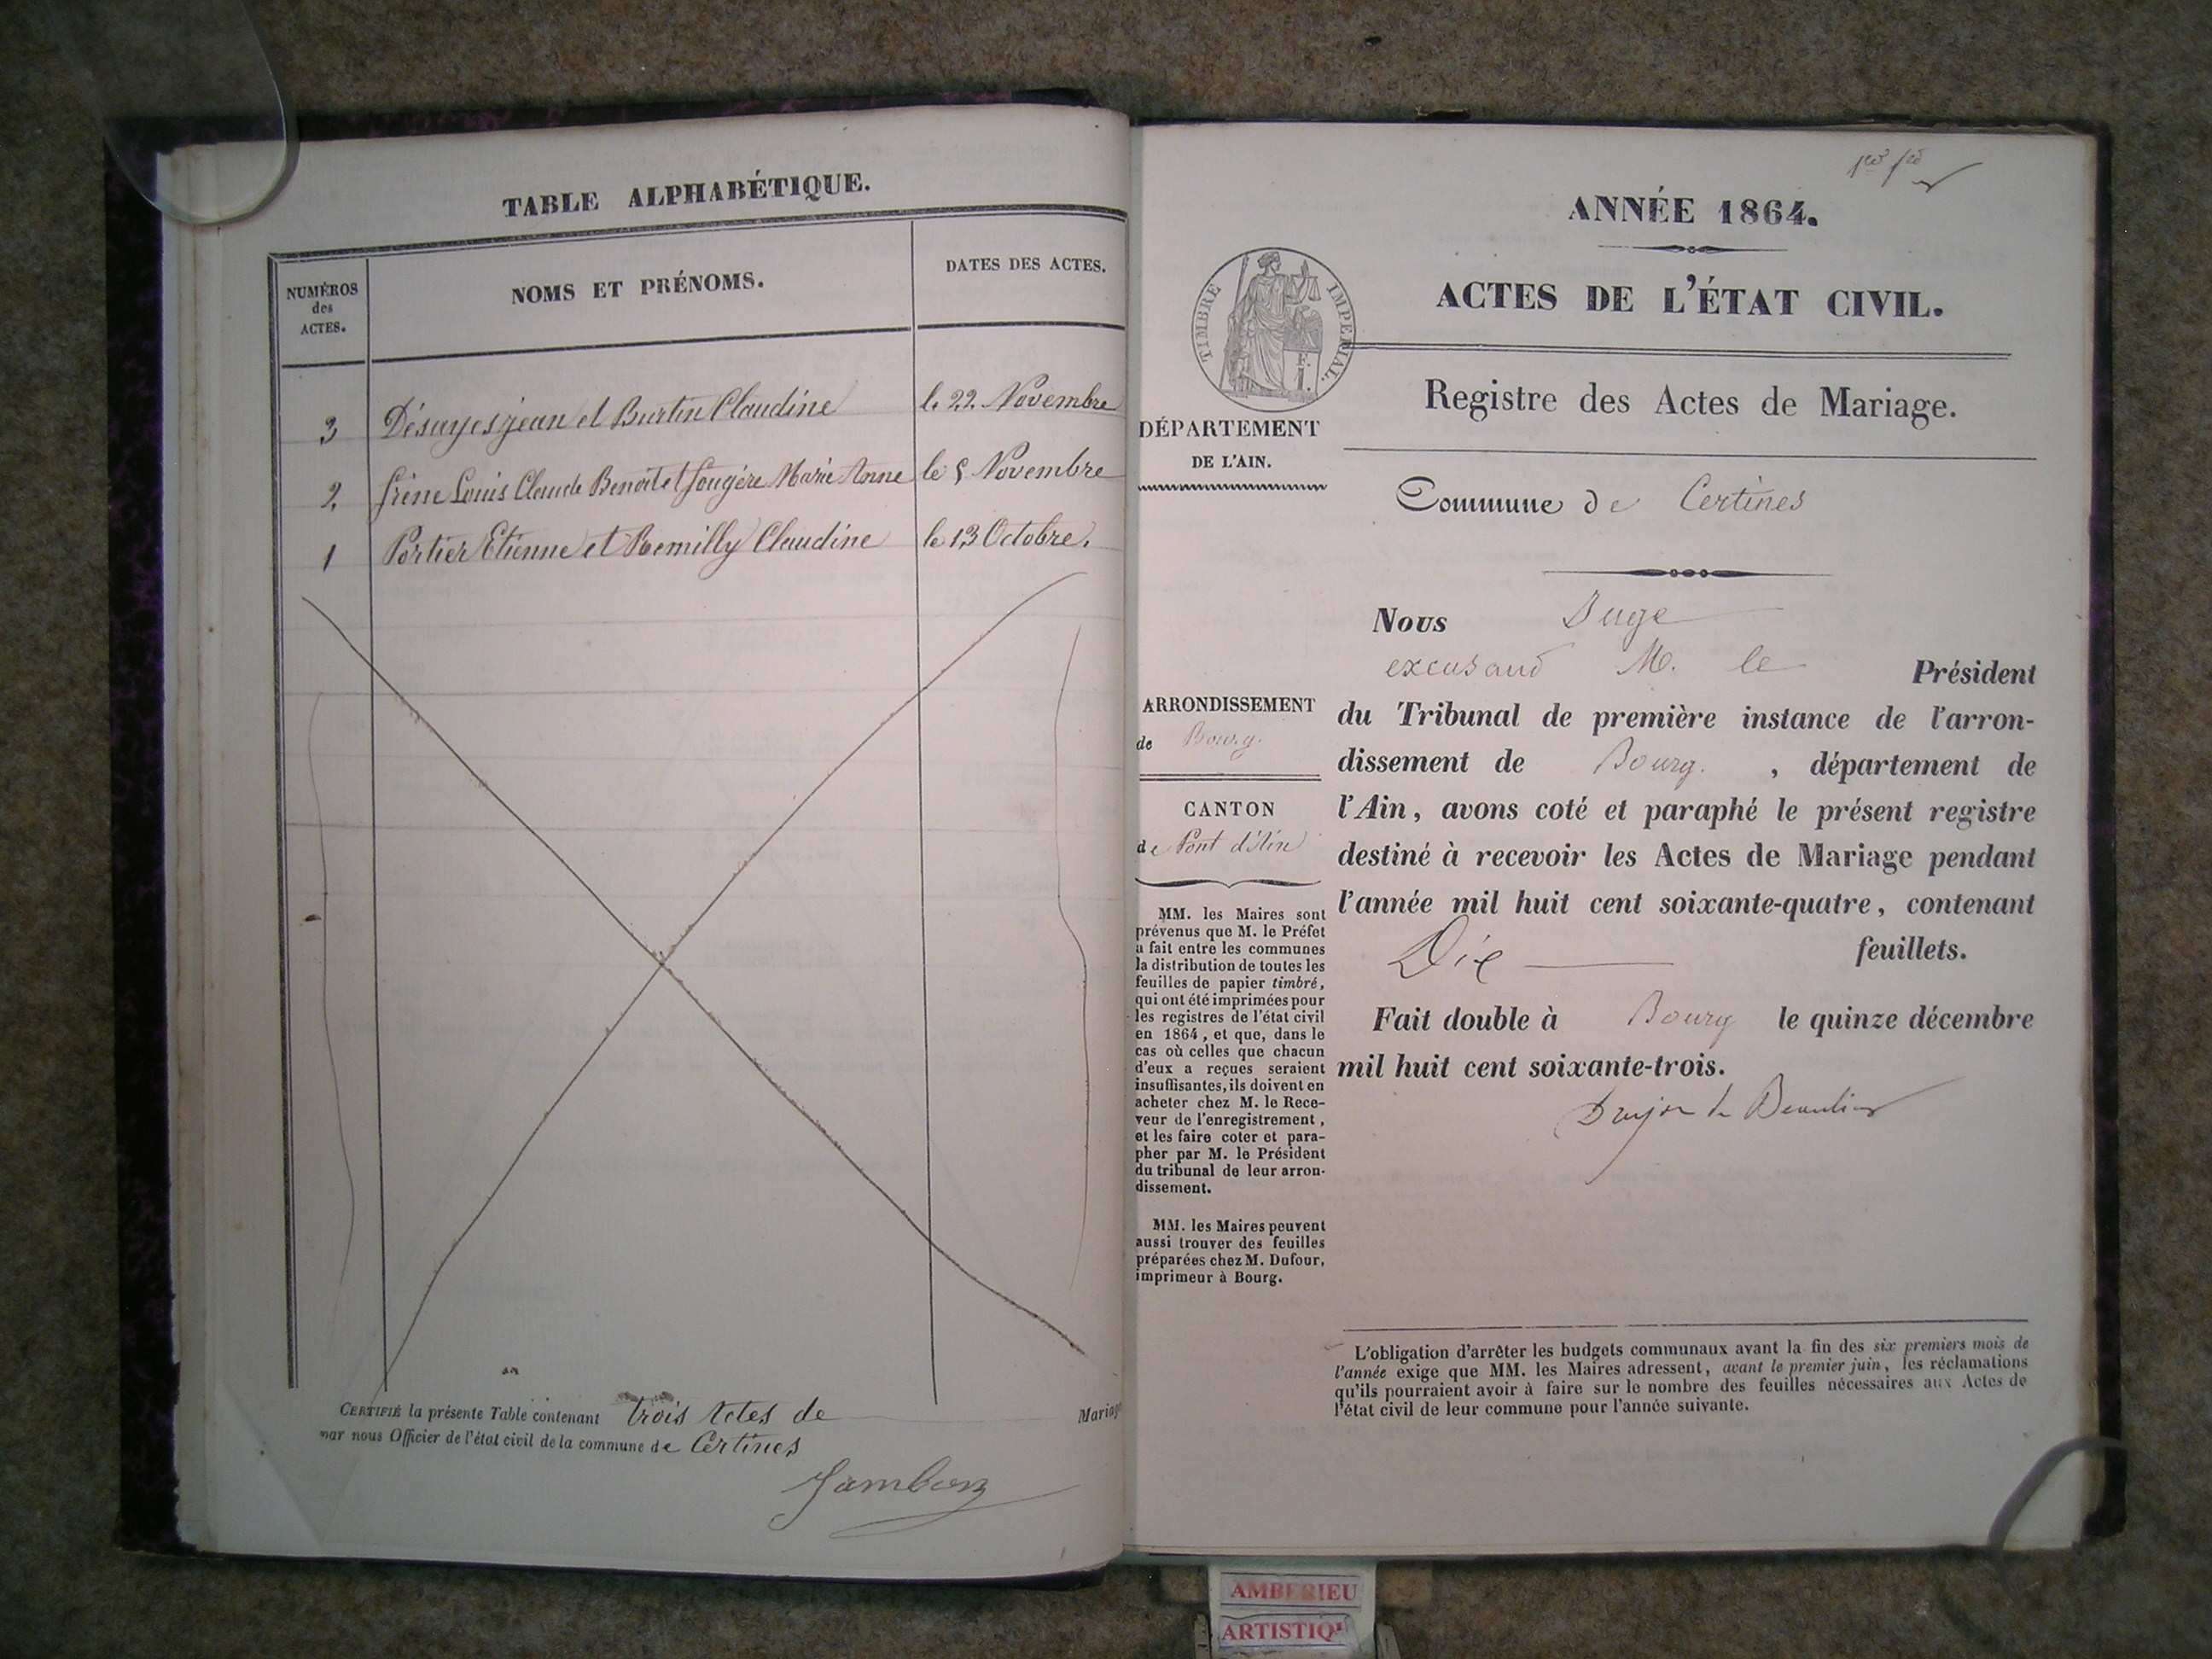 TABLE ALPHABÉTIQUE.
NUMÉROS
des
ACTES.
NOMS ET PRÉNOMS.
DATES DES ACTES.
3 Désayes jean et Burtin Claudine le 22 Novembre
2 frêne Louis Claude Benoit et fougère Marie Anne le 5 Novembre
1 Portier Etienne et Remilly Claudine le 13 Octobre.
CERTIFIÉ la présente Table contenant trois Actes de Mariage
par nous Officier de l'état civil de la commune de Certines
Jambon
ANNÉE 1864.
ACTES DE L'ÉTAT CIVIL.
TIMBRE IMPÉRIAL.
Registre des Actes de Mariage.
DÉPARTEMENT
DE L'AIN.
Commune de Certines
ARRONDISSEMENT
de Bourg.
CANTON
de Pont d'Ain
MM. les Maires sont
prévenus que M. le Préfet
a fait entre les communes
la distribution de toutes les
feuilles de papier timbré,
qui ont été imprimées pour
les registres de l'état civil
en 1864, et que, dans le
cas où celles que chacun
d'eux a reçues seraient
insuffisantes, ils doivent en
acheter chez M. le Rece-
veur de l'enregistrement,
et les faire coter et para-
pher par M. le Président
du tribunal de leur arron-
dissement.
MM. les Maires peuvent
aussi trouver des feuilles
préparées chez M. Dufour,
imprimeur à Bourg.
Nous Juge
M. le Président
du Tribunal de première instance de l'arron-
dissement de Bourg. , département de
l'Ain, avons coté et paraphé le présent registre
destiné à recevoir les Actes de Mariage pendant
l'année mil huit cent soixante-quatre, contenant
Dix feuillets.
Fait double à Bourg le quinze décembre
mil huit cent soixante-trois.
L'obligation d'arrêter les budgets communaux avant la fin des six premiers mois de
l'année exige que MM. les Maires adressent, avant le premier juin, les réclamations
qu'ils pourraient avoir à faire sur le nombre des feuilles nécessaires aux Actes de
l'état civil de leur commune pour l'année suivante.
AMBERIEU
ARTISTIQ